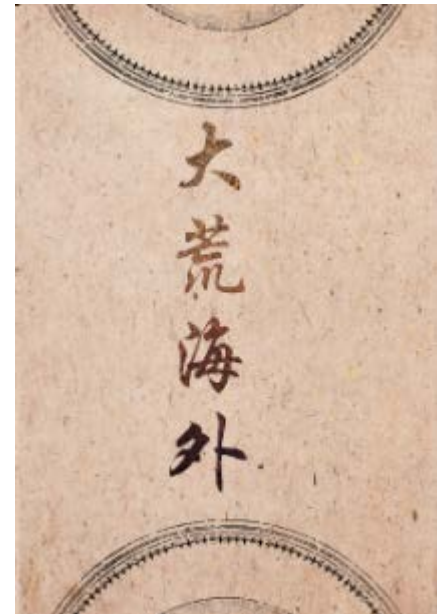 大荒海外